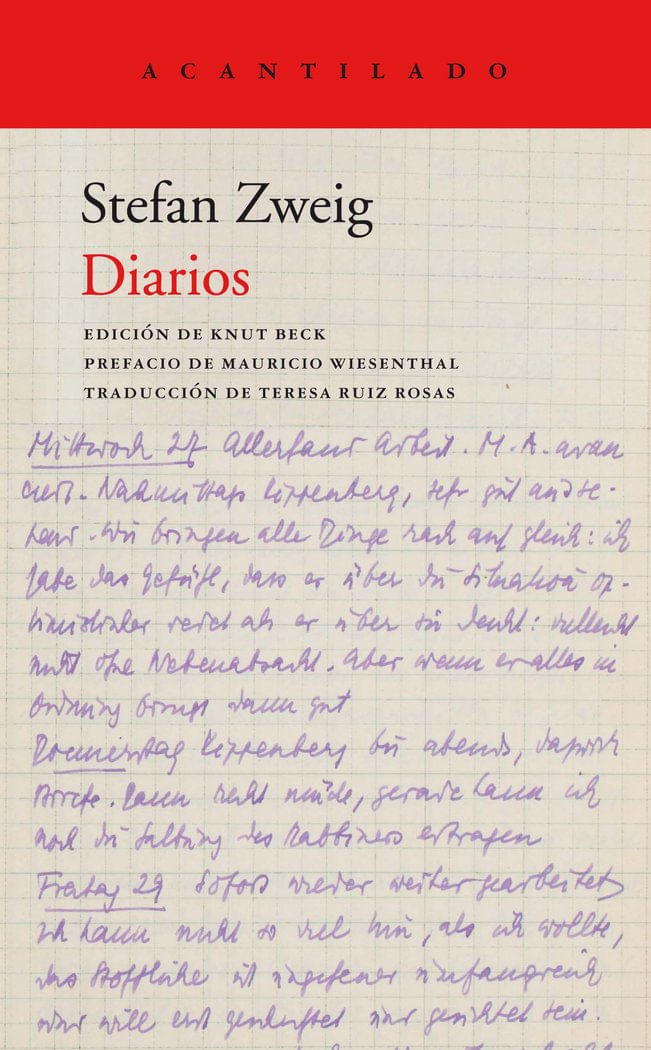 ACANTILADO
Stefan Zweig
Diarios
EDICIÓN DE KNUT BECK
PREFACIO DE MAURICIO WIESENTHAL
TRADUCCIÓN DE TERESA RUIZ ROSAS
Mittwoch 27 Allerhand Arbeit. M. A. avan
ciert. Nachmittags Kippenberg, sehr gut ausse-
hend. Wir bringen alle Dinge rasch auf gleich: ich
habe das Gefühl, dass er über die Situation op-
timistischer redet als er über sie denkt: vielleicht
nicht ohne Nebenabsicht. Aber wenn er alles in
Ordnung bringt dann gut
Donnerstag Kippenberg bis abends, dazwisch
Briefe. Dann recht müde, gerade kann ich
noch die Salbung des Rabbiners ertragen
Freitag 29 Sofort wieder weiter gearbeitet
ich kann nicht so viel hin, als ich wollte,
das Stoffliche ist ungeheuer umfangreich
will erst und sein.